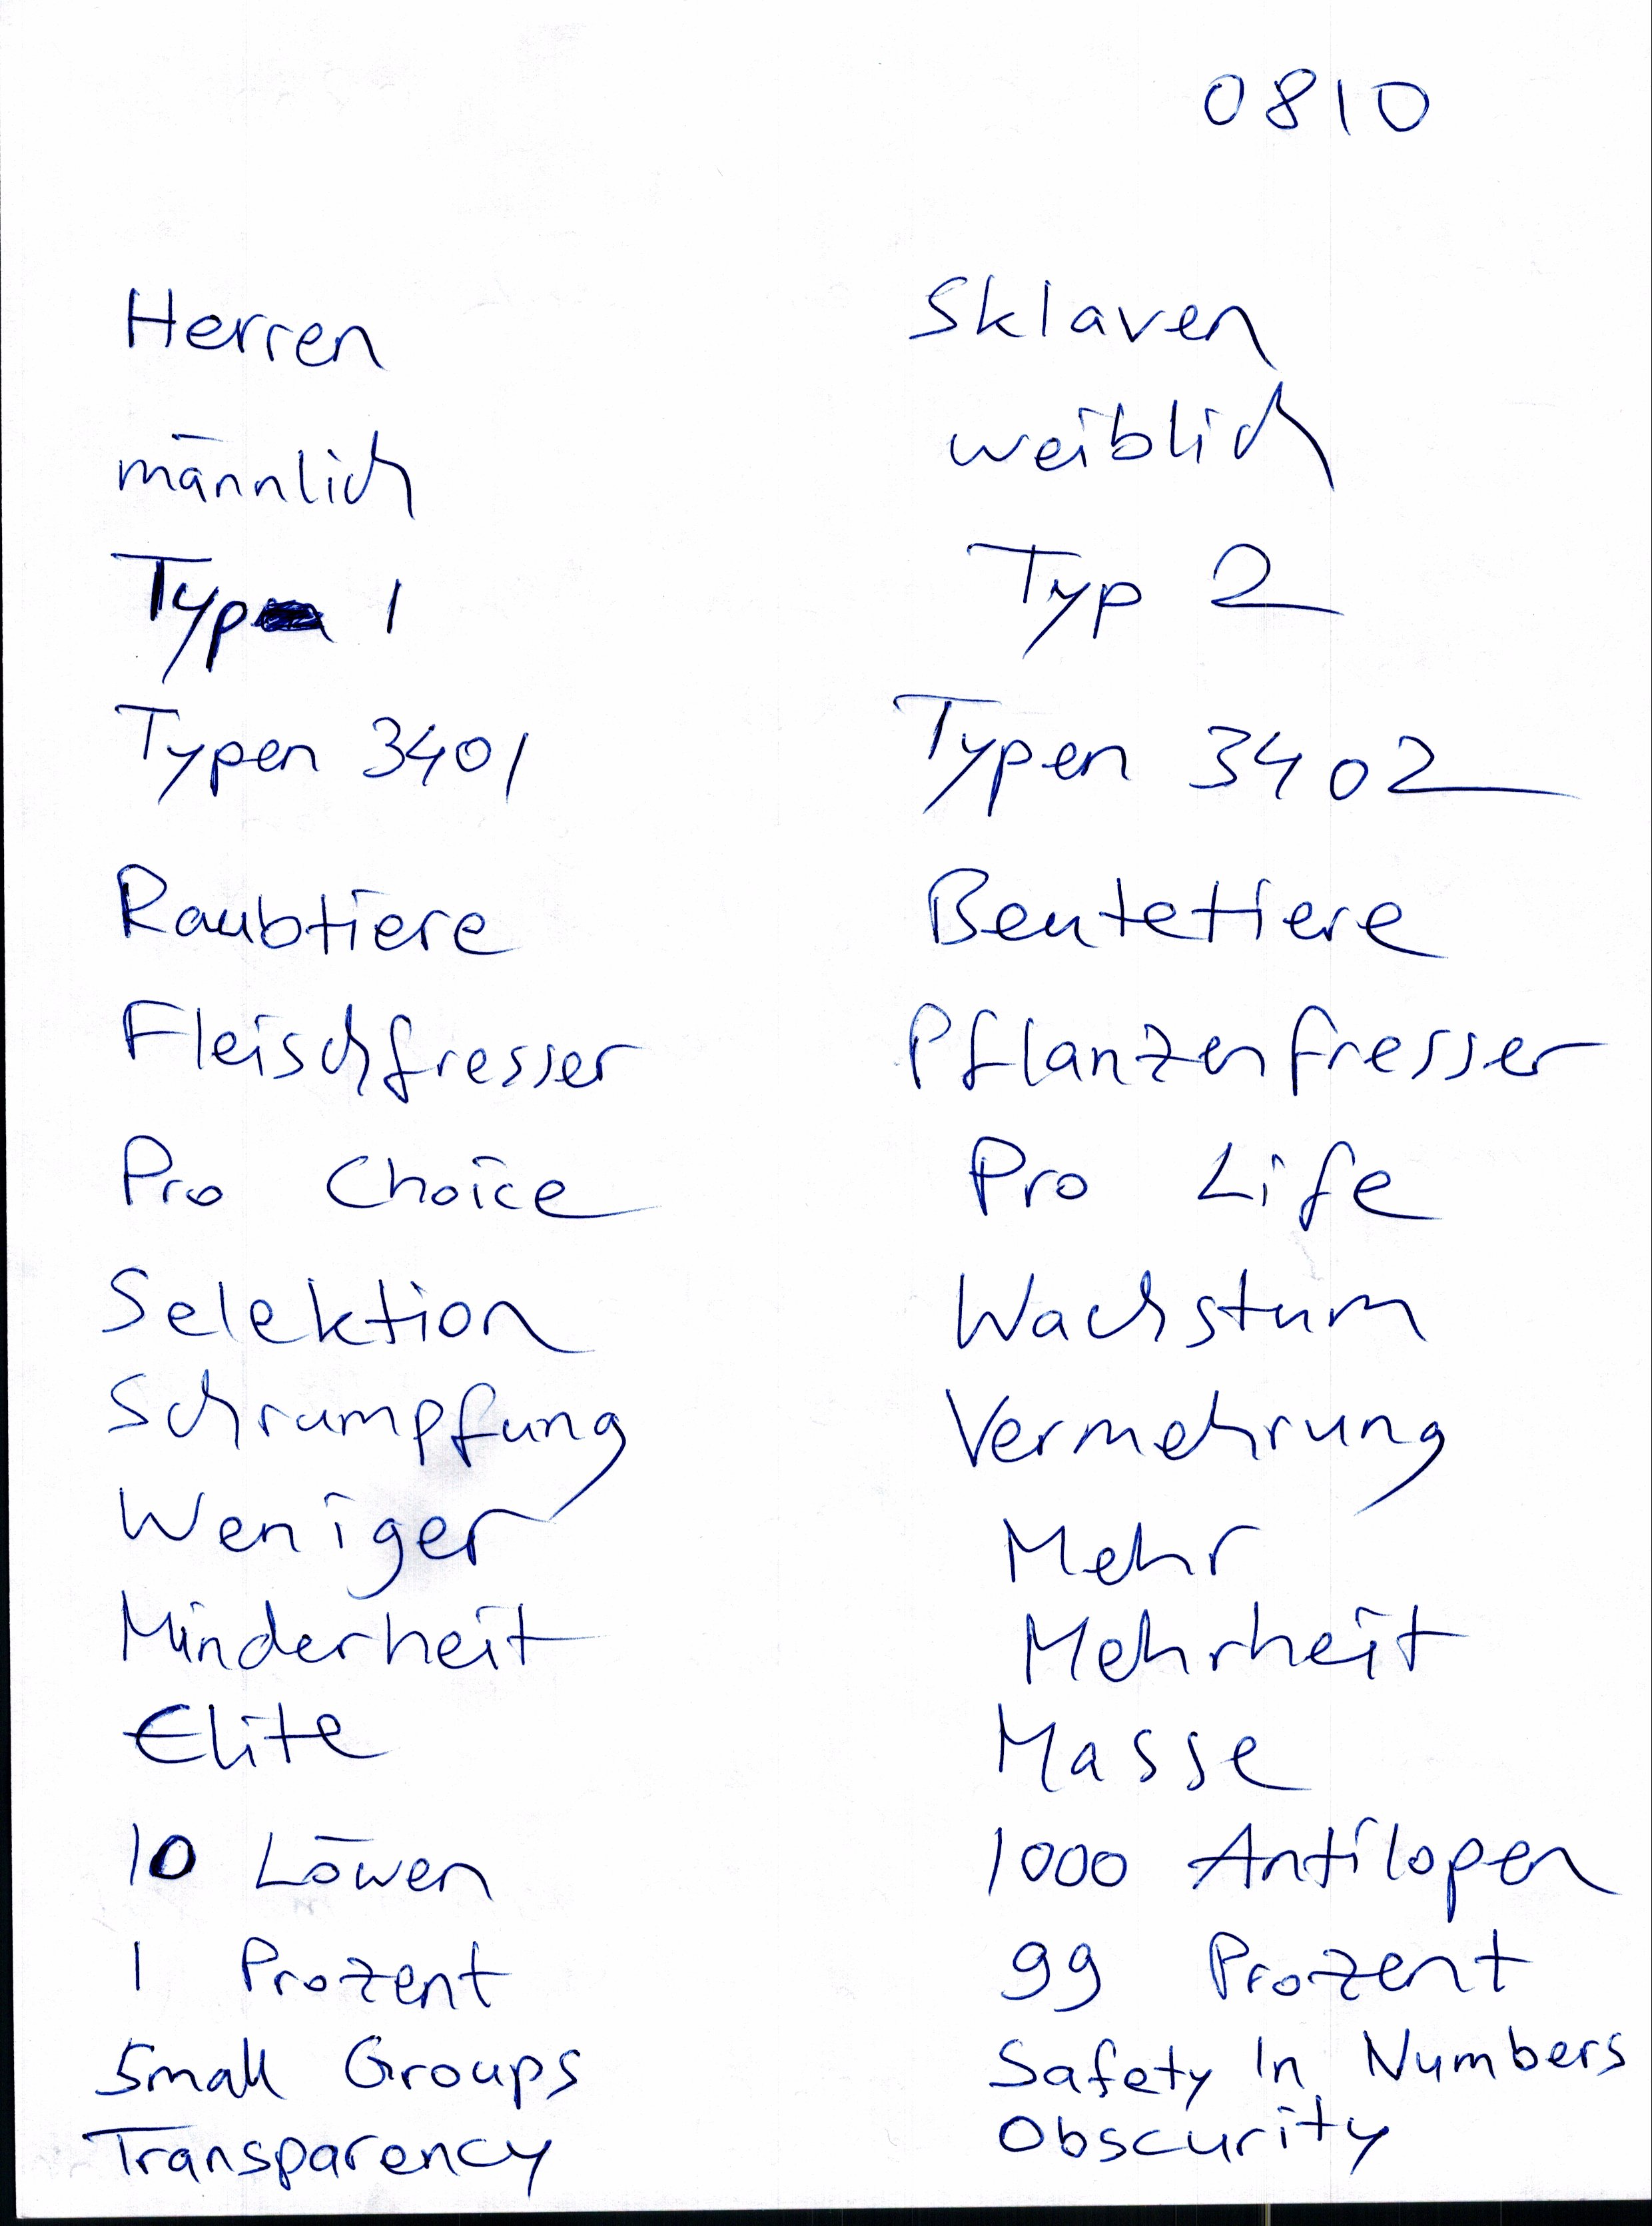 0810
Herren Sklaven
männlich weiblich
Typ 1 Typ 2
Typen 3401 Typen 3402
Raubtiere Beutetiere
Fleischfresser Pflanzenfresser
Pro Choice Pro Life
Selektion Wachstum
Schrumpfung Vermehrung
Weniger Mehr
Minderheit Mehrheit
Elite Masse
10 Löwen 1000 Antilopen
1 Prozent 99 Prozent
Small Groups Safety In Numbers
Transparency Obscurity